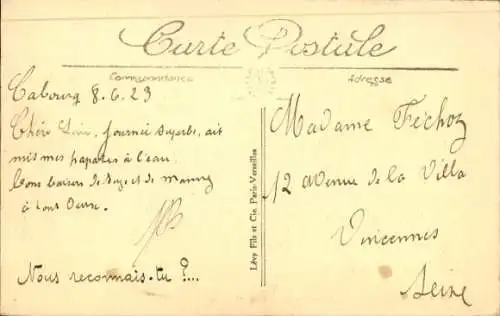 Carte Postale
Correspondance
Adresse
Cabourg 8.6.23
Chère Lini, journée superbe, ait
mis mes papattes à l'eau.
Bons baisers de et de mamy
à tous deux.
Nous reconnais-tu ?...
Lévy Fils et Cie, Paris-Versailles
Madame Féchoz
12 avenue de la Villa
Vincennes
Seine